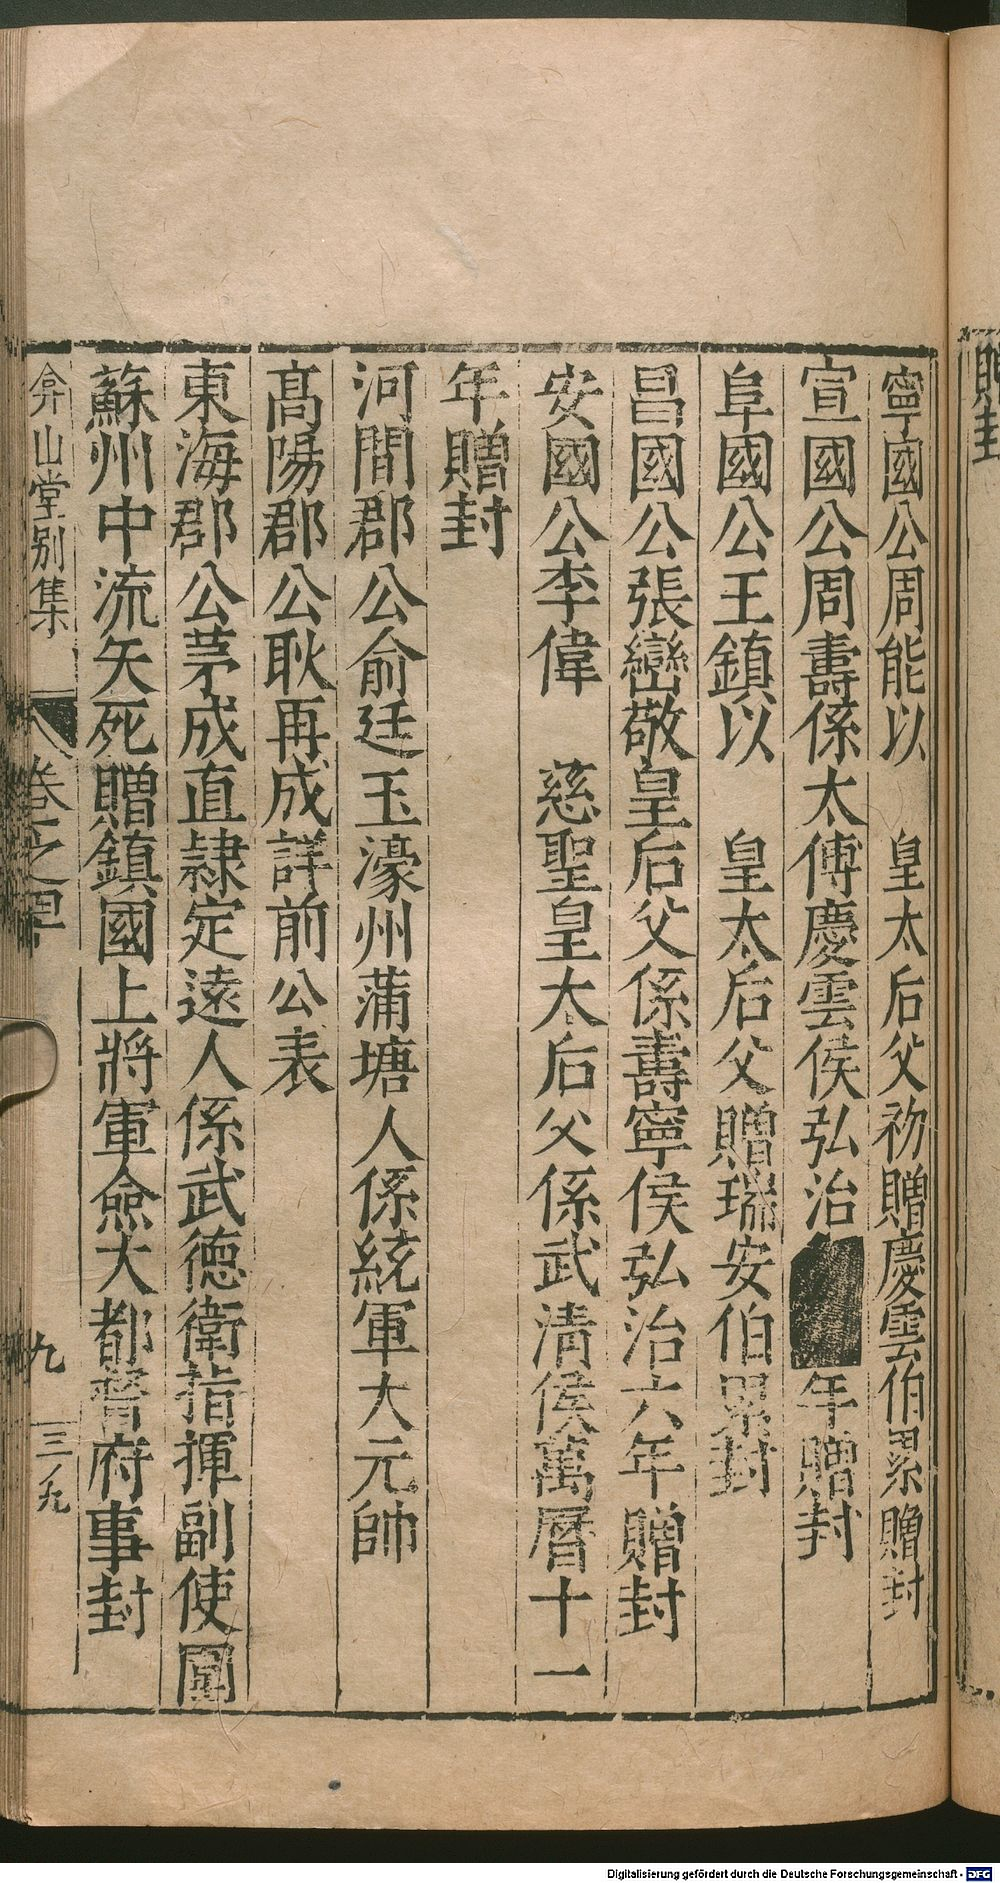 寧國公周能以　皇太后父初贈慶雲伯累贈封
宣國公周壽係太傅慶雲侯弘治年贈封
阜國公王鎮以　皇太后父贈瑞安伯累封
昌國公張巒敬皇后父係壽寧侯弘治六年贈封
安國公李偉　慈聖皇太后父係武清侯萬曆十一
年贈封
河間郡公俞廷玉濠州蒲塘人係統軍大元帥
高陽郡公耿再成詳前公表
東海郡公茅成直隷定遠人係武德衛指揮副使圍
蘇州中流矢死贈鎮國上將軍僉大都督府事封
弇山堂别集
卷之四
九
三九
贈封
Digitalisierung gefördert durch die Deutsche Forschungsgemeinschaft - DFG